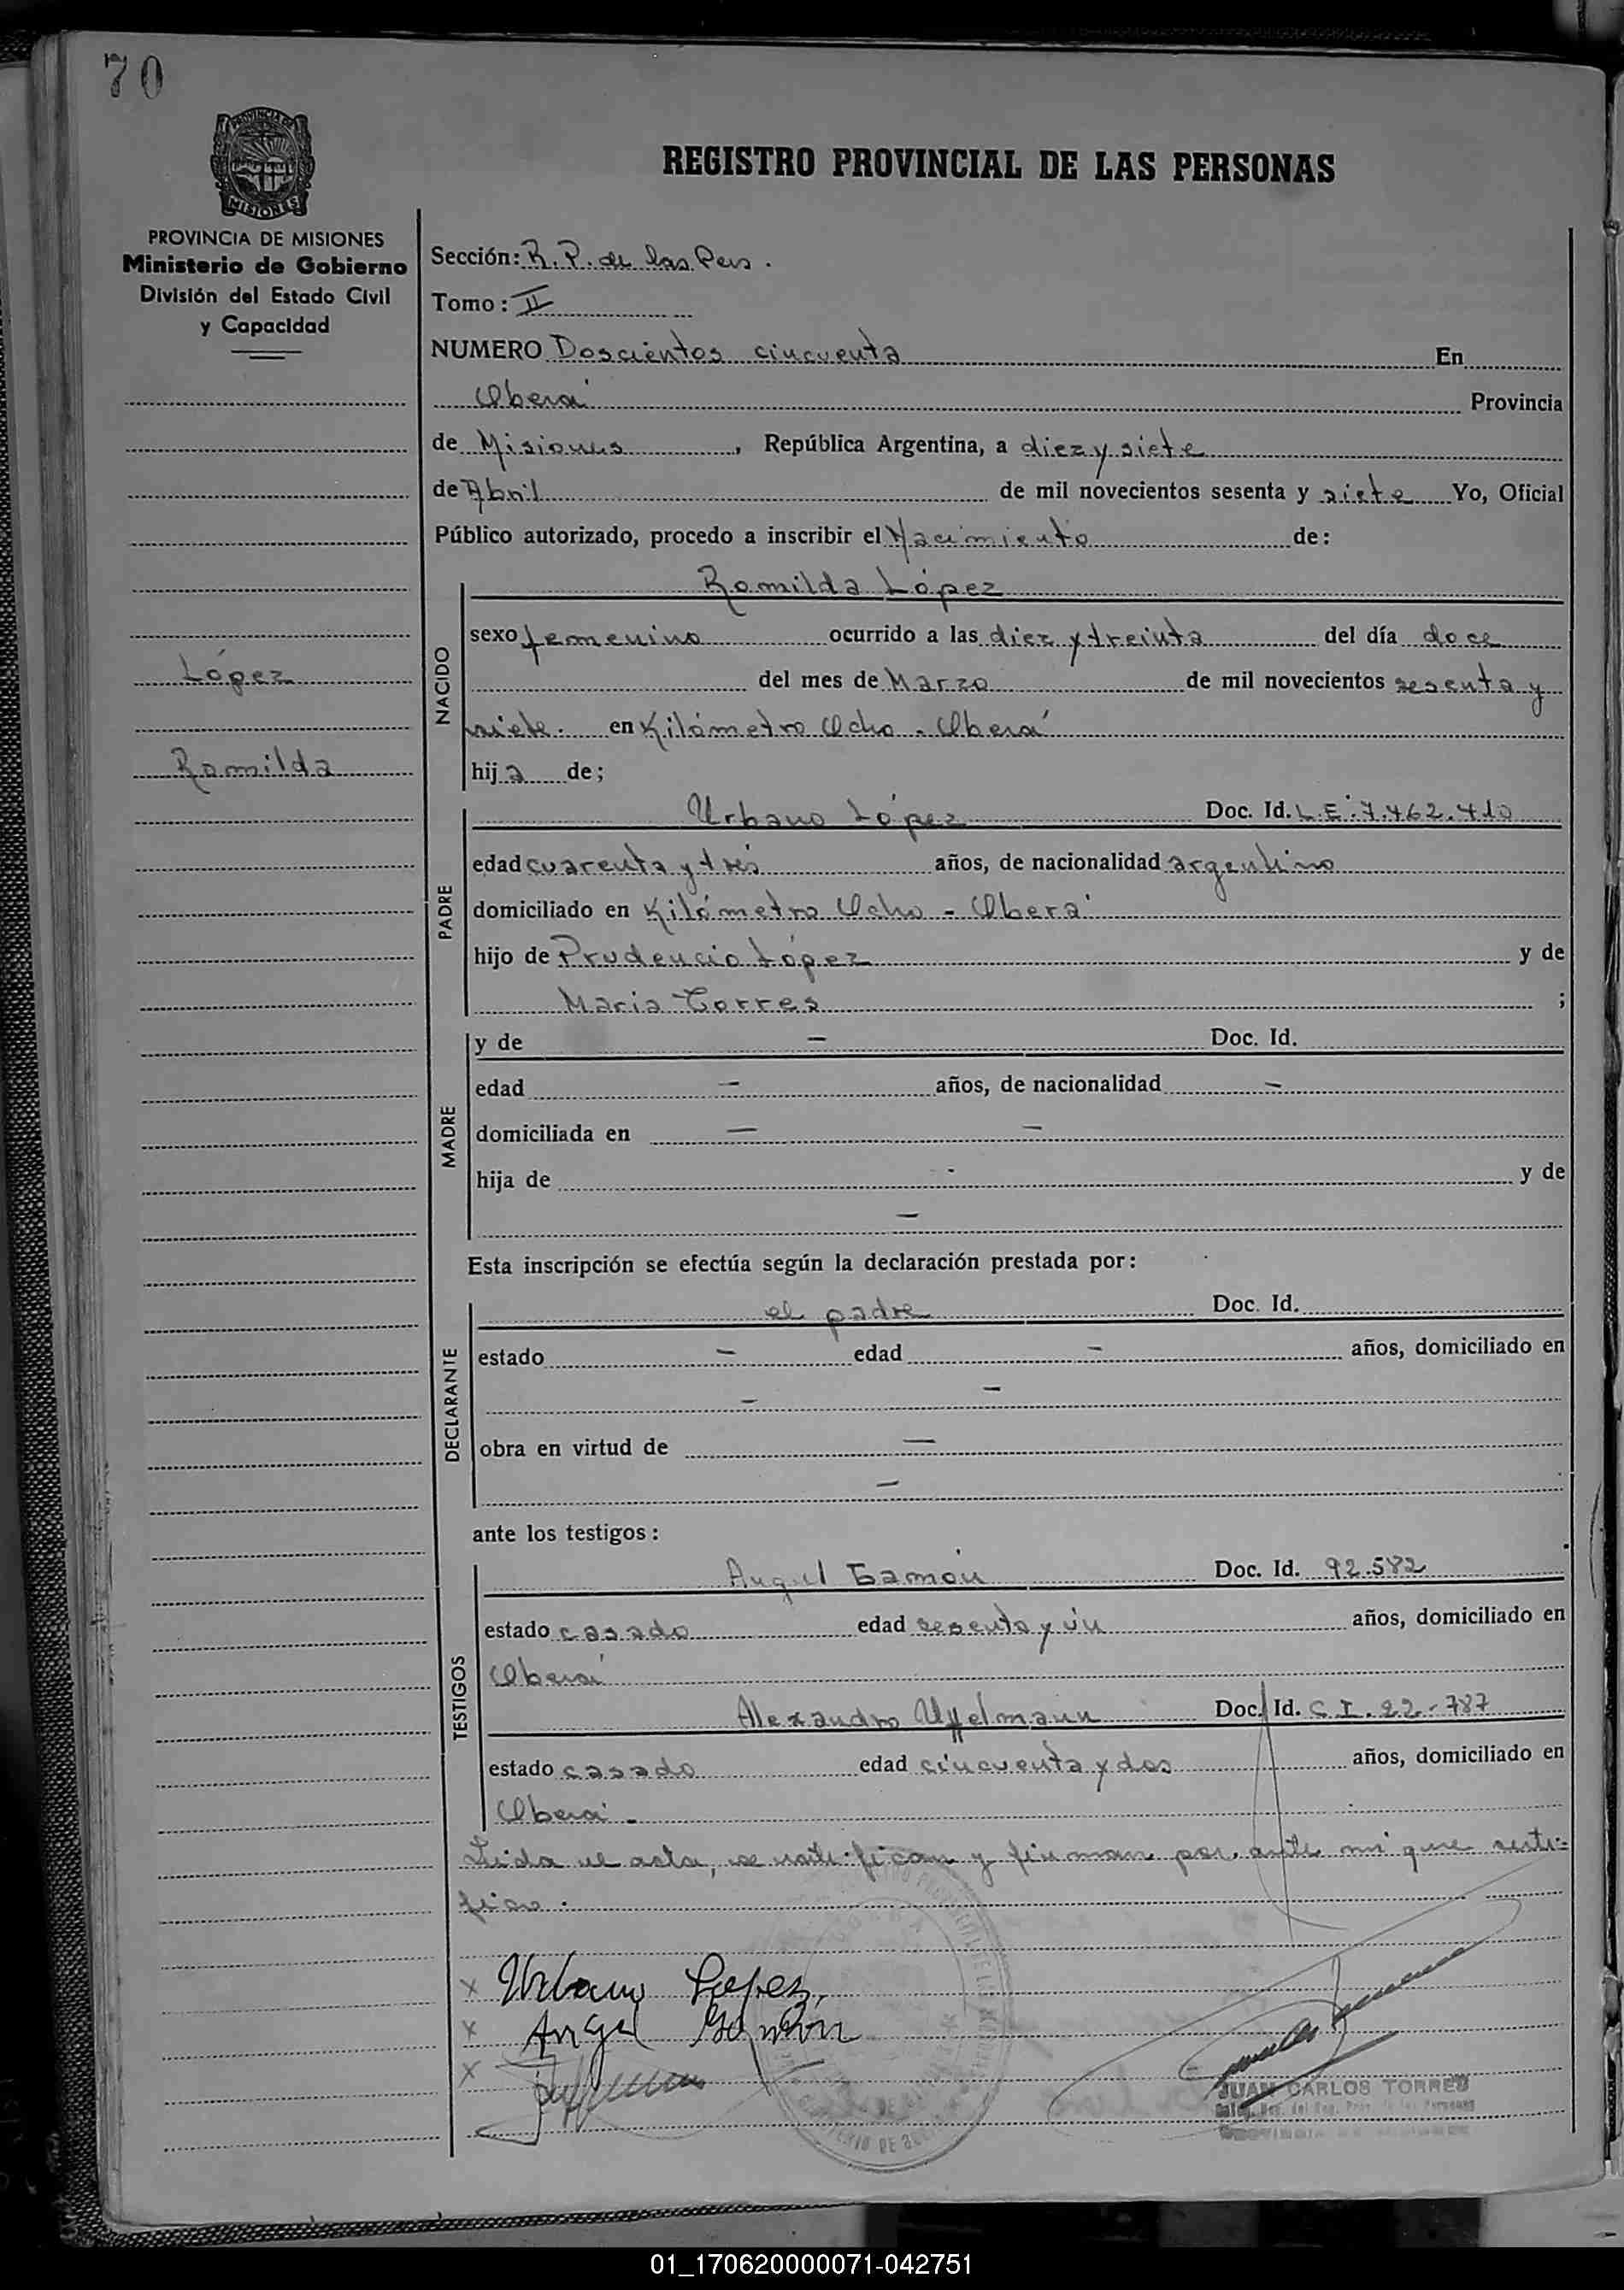 70
PROVINCIA DE MISIONES
MISIONES
PROVINCIA DE MISIONES
Ministerio de Gobierno
División del Estado Civil
y Capacidad
López
Romilda
REGISTRO PROVINCIAL DE LAS PERSONAS
Sección: R. P. de las Pers.
Tomo: II
NUMERO Doscientos cincuenta En
Oberá Provincia
de Misiones, República Argentina, a diez y siete
de Abril de mil novecientos sesenta y siete Yo, Oficial
Público autorizado, procedo a inscribir el Nacimiento de:
NACIDO
Romilda López
sexo femenino ocurrido a las diez y treinta del día doce
del mes de Marzo de mil novecientos sesenta y
siete. en Kilómetro Ocho - Oberá
hija de;
PADRE
Urbano López Doc. Id. L.E. 7.462.410
edad cuarenta y tres años, de nacionalidad argentino
domiciliado en Kilómetro Ocho - Oberá
hijo de Prudencio López y de
Maria Torres ;
MADRE
y de — Doc. Id.
edad — años, de nacionalidad —
domiciliada en — —
hija de - y de
—
Esta inscripción se efectúa según la declaración prestada por:
DECLARANTE
el padre Doc. Id.
estado — edad — años, domiciliado en
— —
obra en virtud de —
—
ante los testigos:
TESTIGOS
Angel Gamón Doc. Id. 92.582
estado casado edad sesenta y ún años, domiciliado en
Oberá
Alexandro Uffelmann Doc. Id. C.I. 22.787
estado casado edad cincuenta y dos años, domiciliado en
Oberá.
Leida el acta, se ratifican y firman por ante mi que certi-
fico.
x Urbano Lopez
x Angel Gamón
x
JUAN CARLOS TORRES
01_170620000071-042751